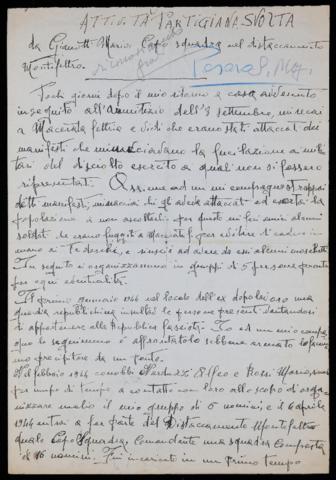 ATTIVITÀ PARTIGIANA SVOLTA
da Gianotti Mario Capo squadra nel distaccamento
Montefeltro.
Pesaro
Pochi giorni dopo il mio ritorno a casa avvenuto
in seguito all'armistizio dell'8 settembre, mi recai
a Macerata feltria e vidi che erano stati attaccati dei
manifesti che minacciavano la fucilazione a mili
tari del disciolto esercito a quali non si fossero
ripresentati. Assieme ad un mio compagno strappai
detti manifesti, minacciai chi gli aveva attaccati ed esortai la
popolazione a non ascoltarli per questo mi feci amici alcuni
soldati che erano fuggiti a Macerata f. per evitare di cadere in
mano ai Tedeschi, e riuscii ad avere da essi alcuni moschetti
In seguito ci organizzammo in gruppi di 5 persone pronte
per ogni eventualità.
Il primo Gennaio 1944 nel locale dell'ex dopolavoro una
guardia repubblichina insultò le persone presenti vantandosi
di appartenere alla Repubblica fascista. Io ed un mio compa
gno lo seguimmo e affrontatolo sebbene armato lo facem
mo precipitare da un ponte.
Nel febbraio 1944 conobbi
Effeo e Rossi Mario,
per
tempo
a contatto con loro allo scopo d'orga
nizzare
il mio gruppo di 6 uomini, e il 6 aprile
1944 entrai a far parte del Distaccamento Montefeltro
quale Capo Squadra, Comandante una squadra composta
di 16 uomini. Fui incaricato in un primo tempo